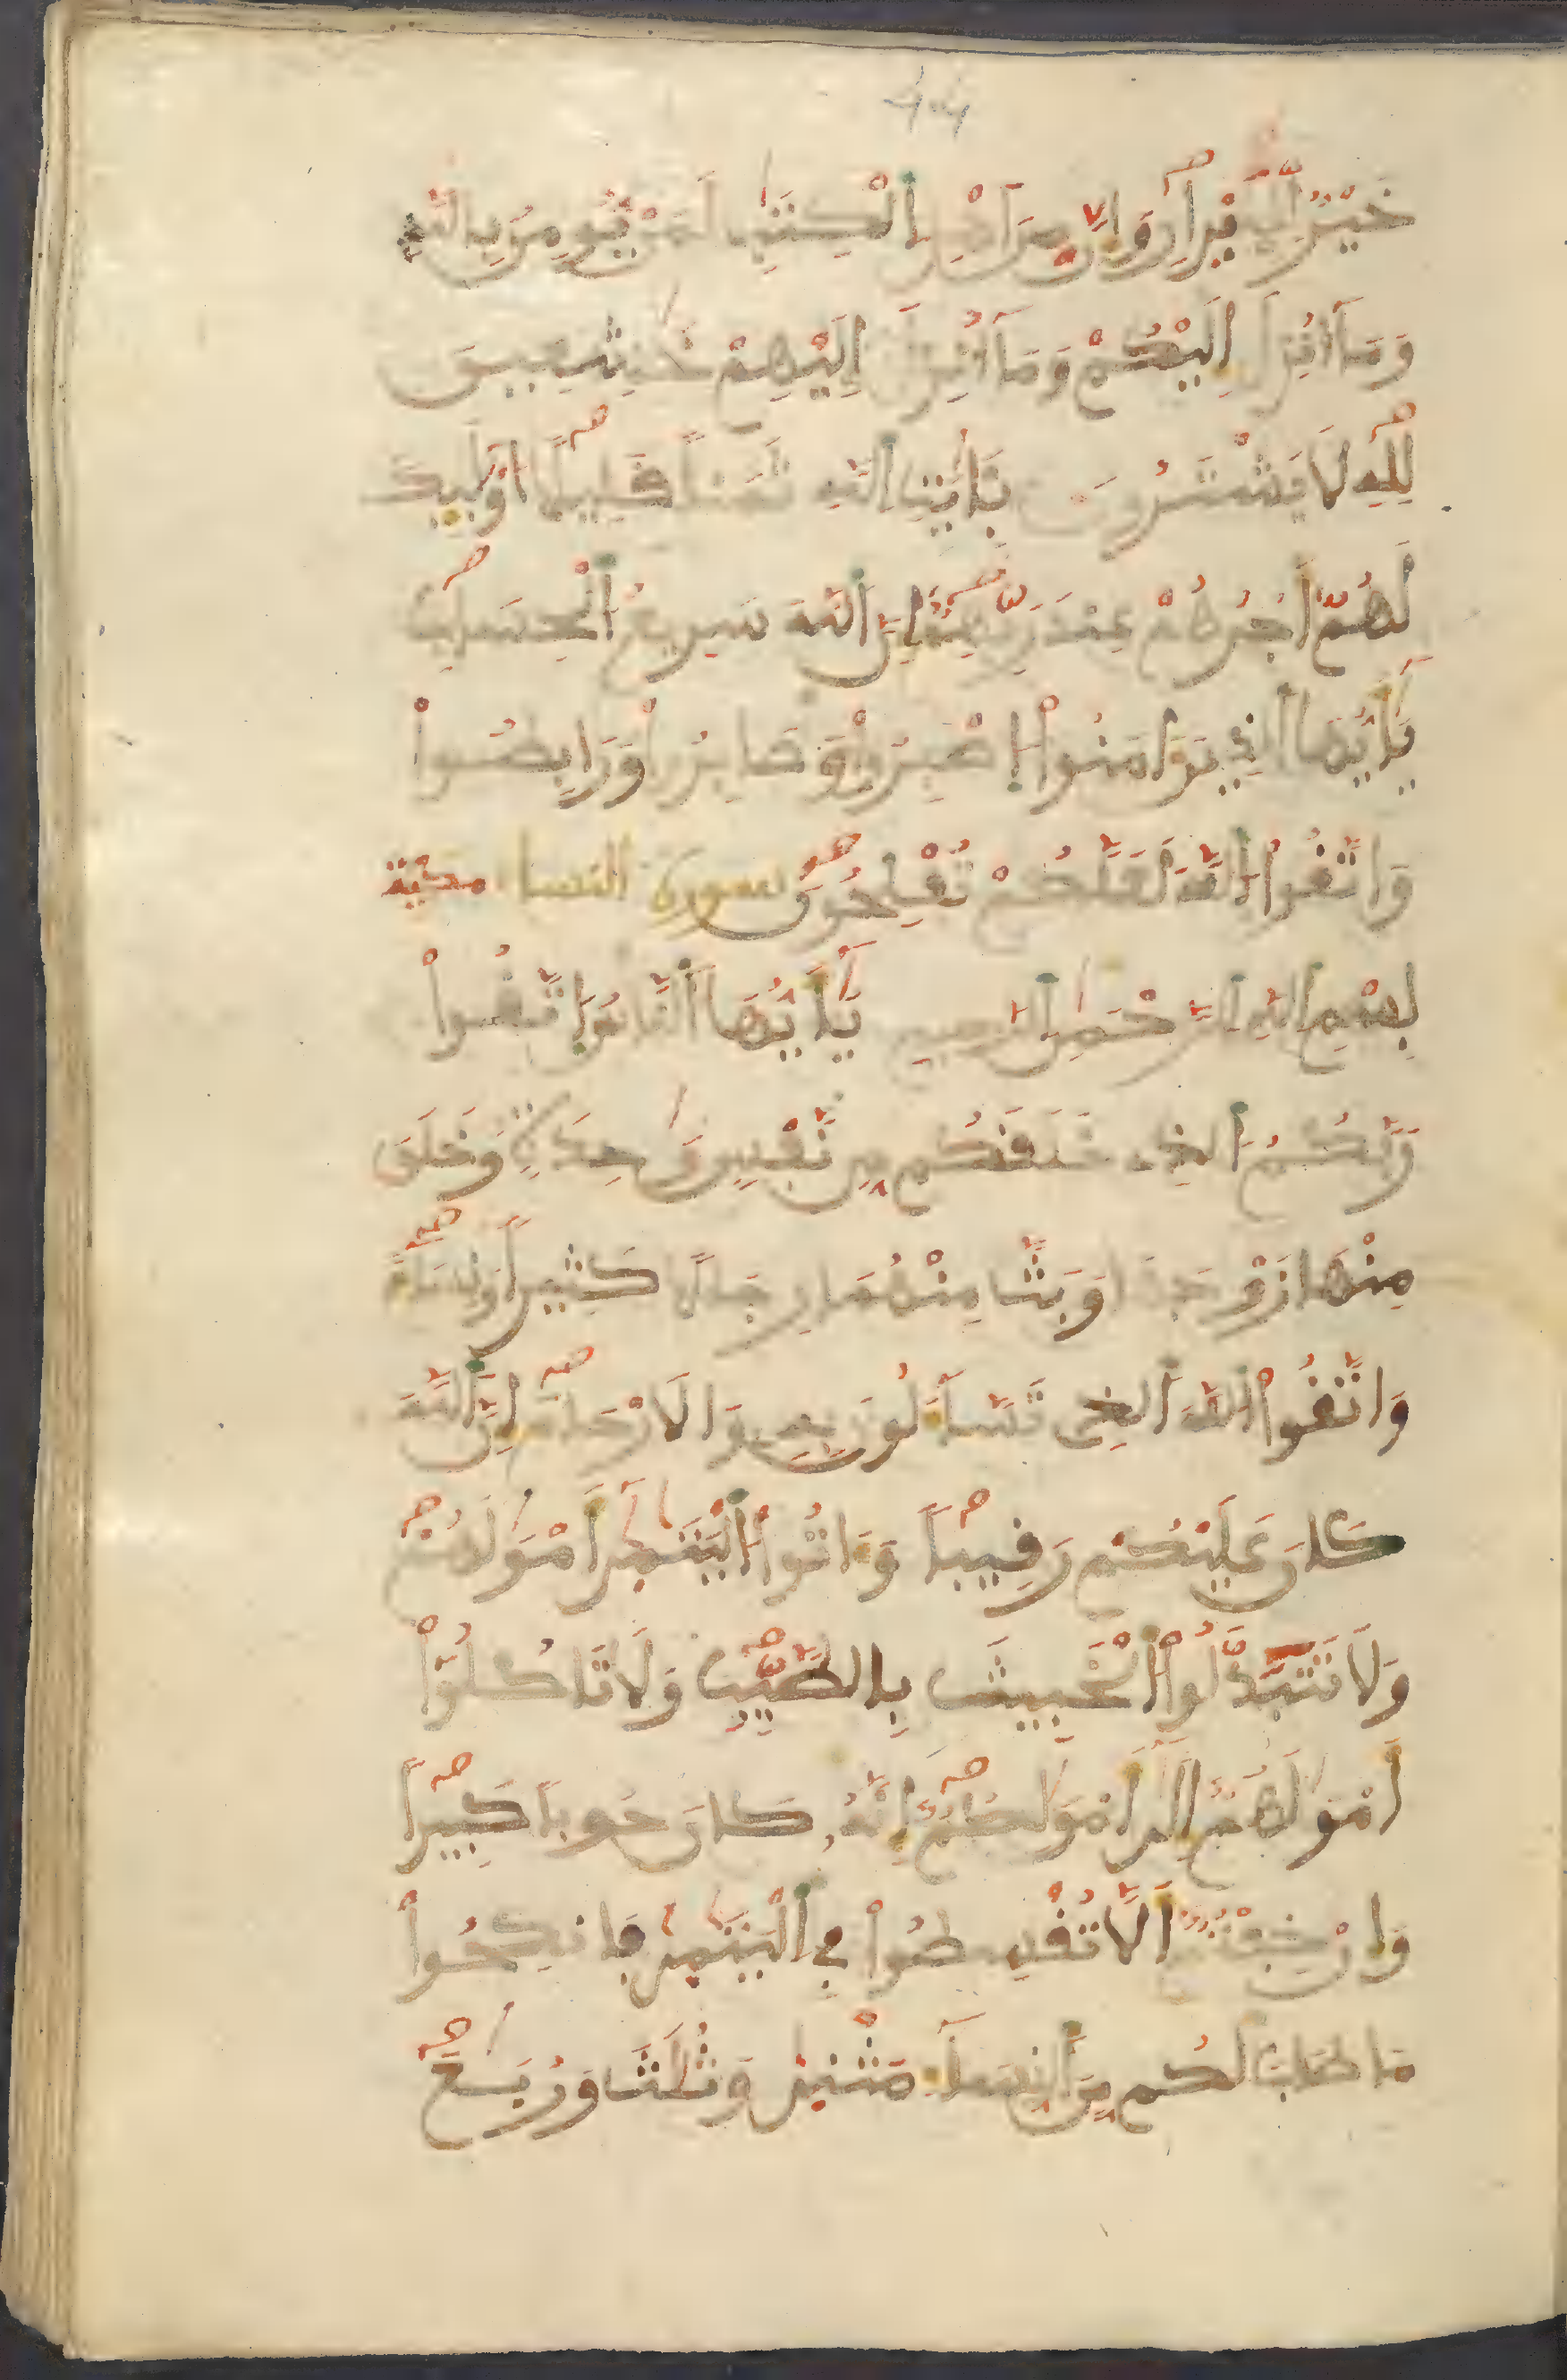 خَيْرٌ لِّلَابْرارِ وَإِنَّ مِنَ اَهْلِ اِ۬لْكِتَٰبِ لَمَنْ يُّومِنُ بِاللَّهِ
وَمَآ أُنزِلَ إِلَيْكُمْ وَمَآ أُنزِلَ إِلَيْهِمْ خَٰشِعِينَ
لِلهِ لَا يَشْتَرُونَ بِـَٔايَٰتِ اِ۬للَّهِ ثَمَناً قَلِيلًا اوْلَٰٓئِكَ
لَهُمُۥٓ أَجْرُهُمْ عِندَ رَبِّهِمُۥٓ إِنَّ اَ۬للَّهَ سَرِيعُ اُ۬لْحِسَابِ
يَٰٓأَيُّهَا اَ۬لذِينَ ءَامَنُواْ اُ۪صْبِرُواْ وَصَابِرُواْ وَرَابِطُواْ
وَاتَّقُواْ اُ۬للَّهَ لَعَلَّكُمْ تُفْلِحُونَ سورة النسا مكية
بِسْمِ اِ۬للَّهِ اِ۬لرَّحْمَٰنِ اِ۬لرَّحِيمِ يَٰٓأَيُّهَا اَ۬لنَّاسُ اُ۪تَّقُواْ
رَبَّكُمُ اُ۬لذِے خَلَقَكُم مِّن نَّفْسٍ وَٰحِدَةٍ وَخَلَقَ
مِنْهَا زَوْجَهَا وَبَثَّ مِنْهُمَا رِجَالًا كَثِيراً وَنِسَآءً
وَاتَّقُواْ اُ۬للَّهَ اَ۬لذِے تَسَّآءَلُونَ بِهِۦ وَالَارْحَامَ إِنَّ اَ۬للَّهَ
كَانَ عَلَيْكُمْ رَقِيباً وَءَاتُواْ اُ۬لْيَتَٰمَيٰٓ أَمْوَٰلَهُمْ
وَلَا تَتَبَدَّلُواْ اُ۬لْخَبِيثَ بِالطَّيِّبِ وَلَا تَاكُلُوٓاْ
أَمْوَٰلَهُمُۥٓ إِلَيٰٓ أَمْوَٰلِكُمُۥٓ إِنَّهُۥ كَانَ حُوباً كَبِيراً
وَإِنْ خِفْتُمُۥٓ أَلَّا تُقْسِطُواْ فِے اِ۬لْيَتَٰمَيٰ فَانكِحُواْ
مَا طَابَ لَكُم مِّنَ اَ۬لنِّسَآءِ مَثْنَيٰ وَثُلَٰثَ وَرُبَٰعَ